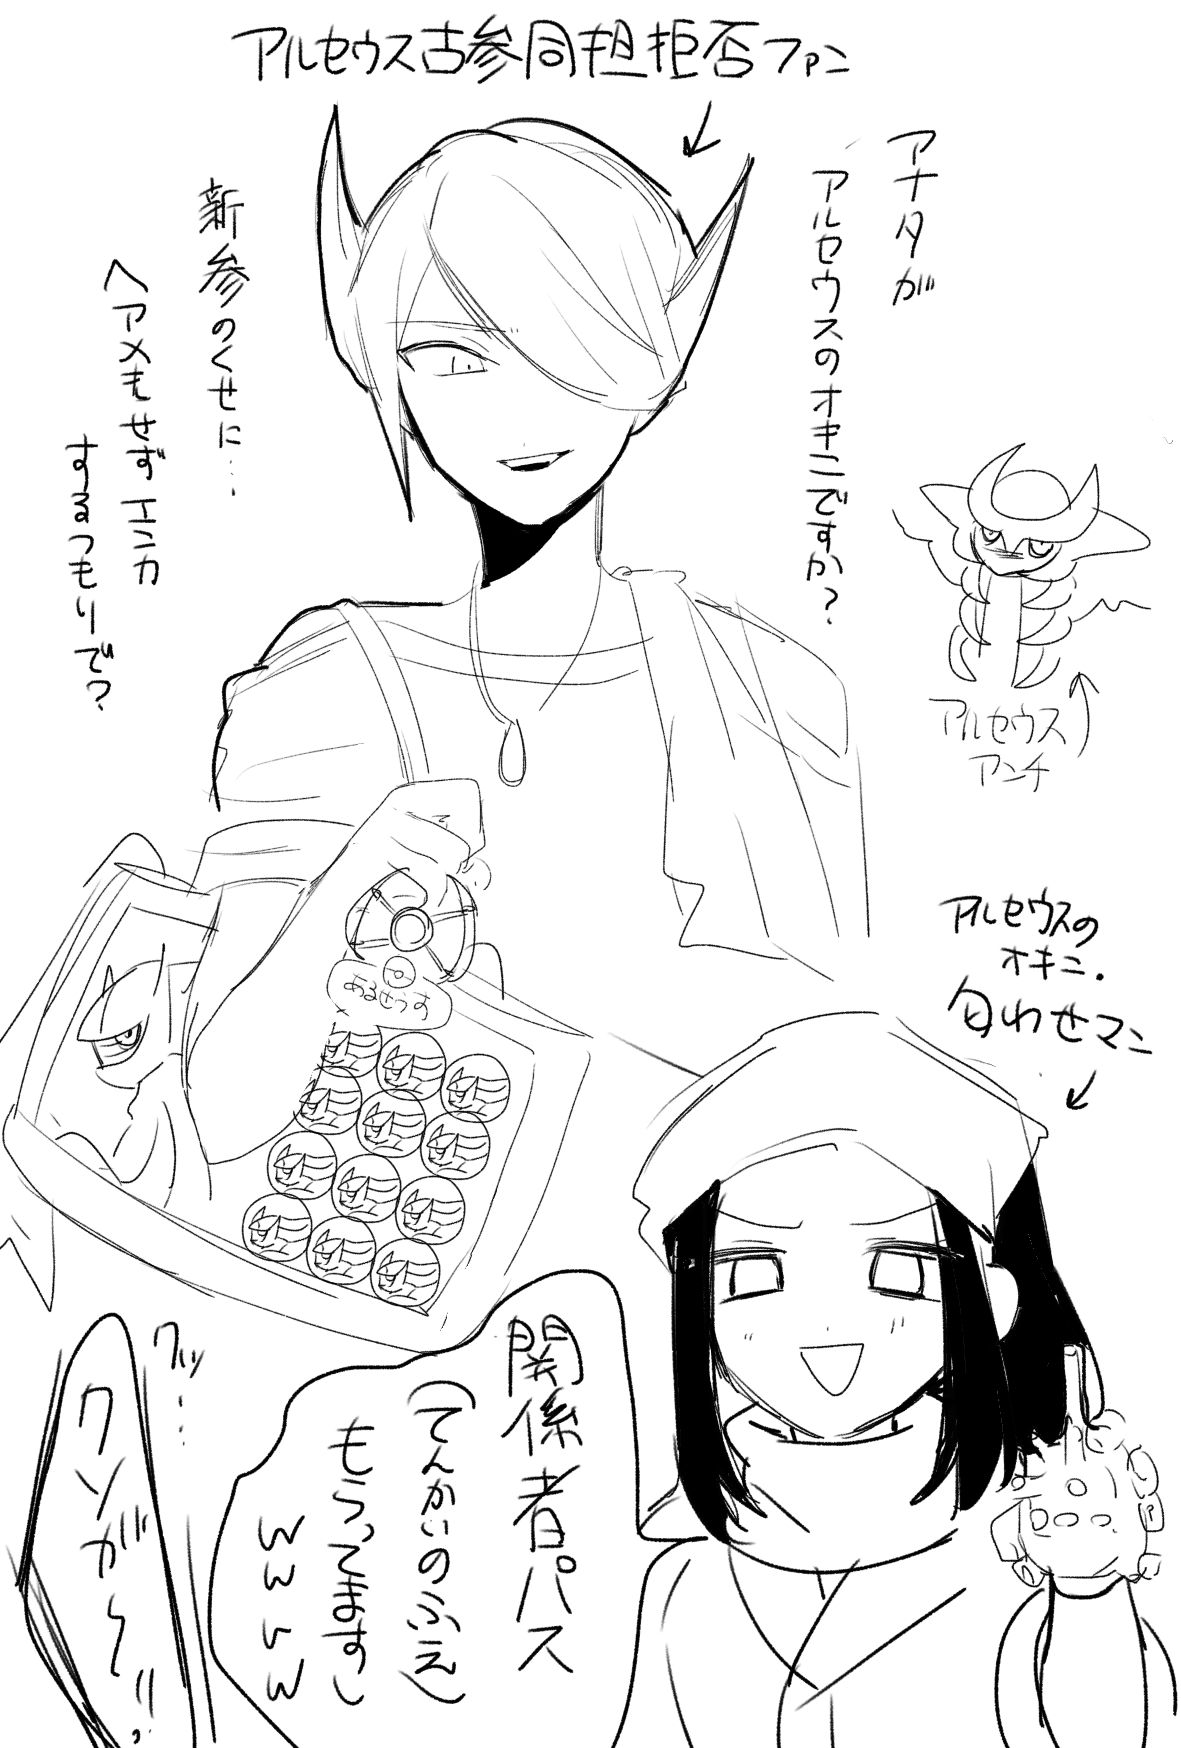 アルセウス古参同担拒否ファン
アナタが
アルセウスのオキニですか?
新参のくせに…
ヘアメもせずエニカ
するつもりで?
アルセウス
アンチ
あるせうす
アルセウスの
オキニ.
匂わせマン
関係者パス
(てんかいのふえ)
もらってますし
クッ…
クソが~!!